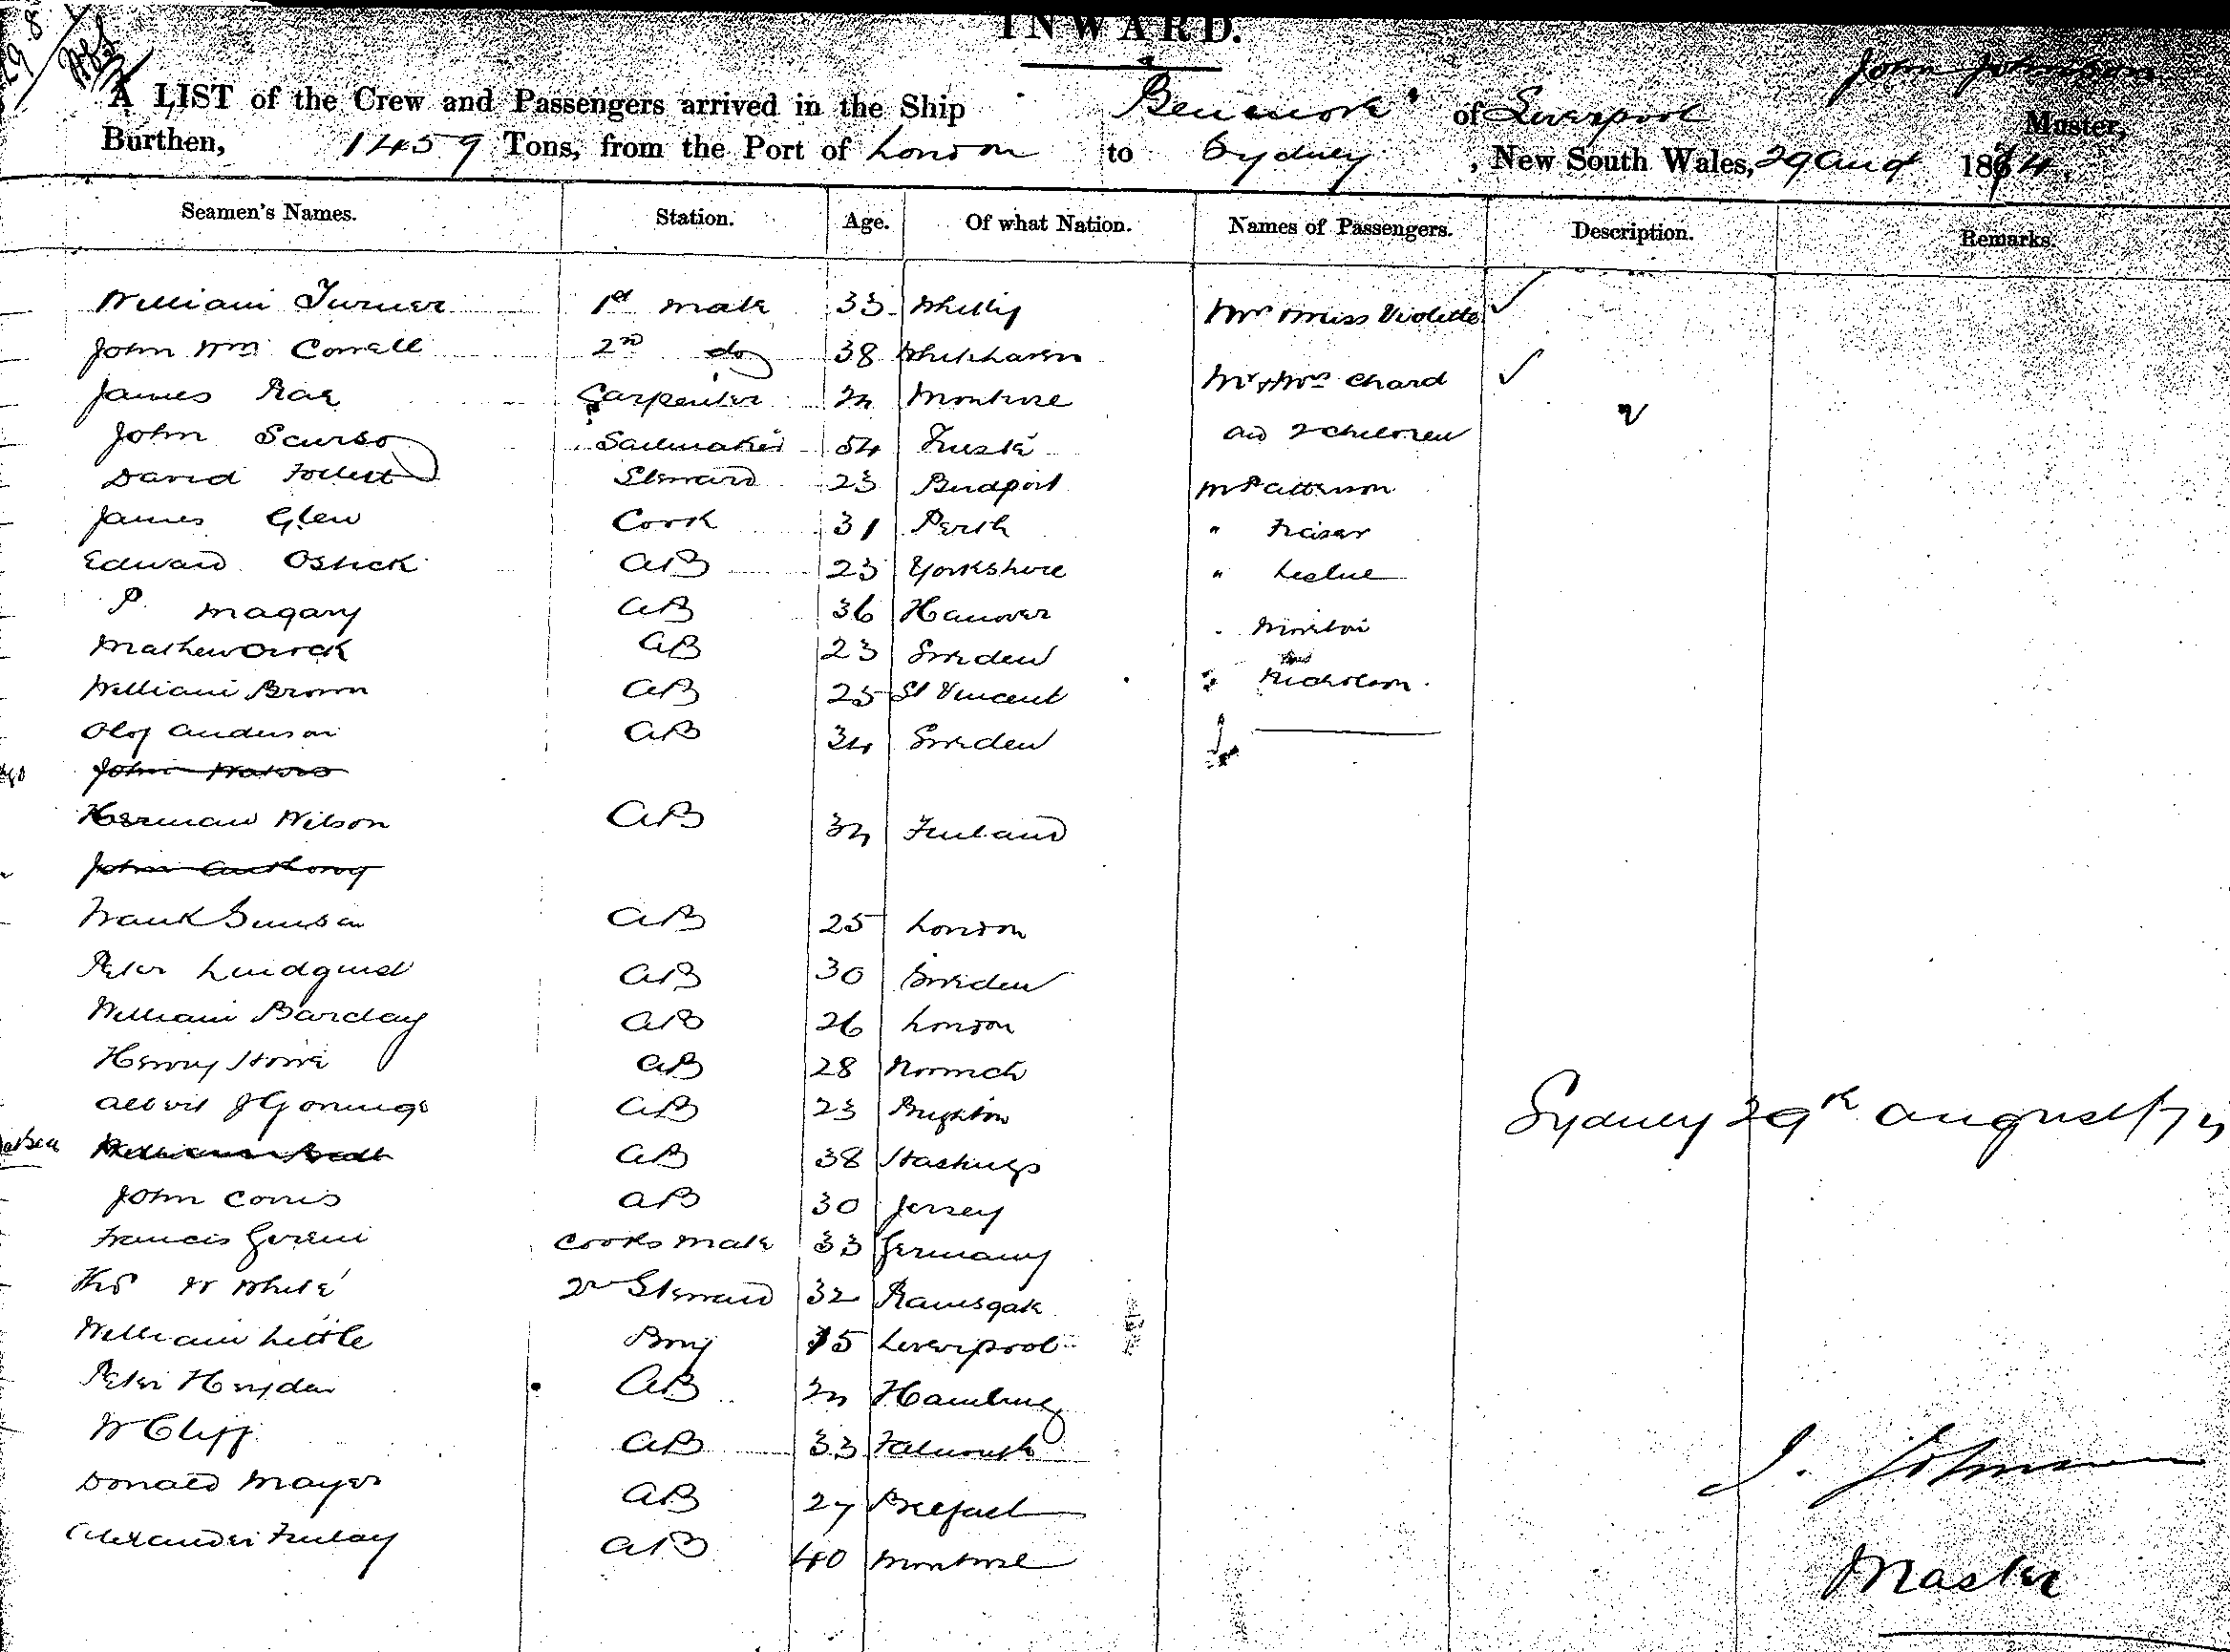 INWARD.
John Johnson
A LIST of the Crew and Passengers arrived in the Ship Benmore of Liverpool Master,
Burthen, 1459 Tons, from the Port of London to Sydney, New South Wales, 29 Aug 1874.
Seamen's Names. Station. Age. Of what Nation. Names of Passengers. Description. Remarks.
William Turner 1st mate 33 Whitby Mr & Miss Violette
John Wm 2nd do 38 Whitehaven Mr & Mrs Chard
James Rae Carpenter 24 Montrose
John Sailmaker 54 and 2 children
David Follett Steward 23 Birdport Mr Patterson
James Glen Cook 31 Perth " Fraser
Edward Ostick AB 23 Yorkshire " Leslie
P. Magary AB 36 Hanover
Mathew AB 23 Sweden
William Brown AB 25 St Vincent Nicholson
Olof Anderson AB 34 Sweden
John
Herman Wilson AB 34 Finland
John Anthony
Frank AB 25 London
Peter Lindquist AB 30 Sweden
William Barclay AB 26 London
Henry Howe AB 28 Norwich
Albert J Gonings AB 23 Brighton
Sydney 29th August /74
William AB 38 Hastings
John AB 30 Jersey
Francis Cooks mate 33 Germany
Thos W White 2nd Steward 32 Ramsgate
William Little Boy 15 Liverpool
Peter Heyden AB 24 Hamburg
W Cliff AB 33 Falmouth
Donald Mayer AB 27 Belfast
J. Johnson
Alexander Finlay AB 40 Montrose
Master